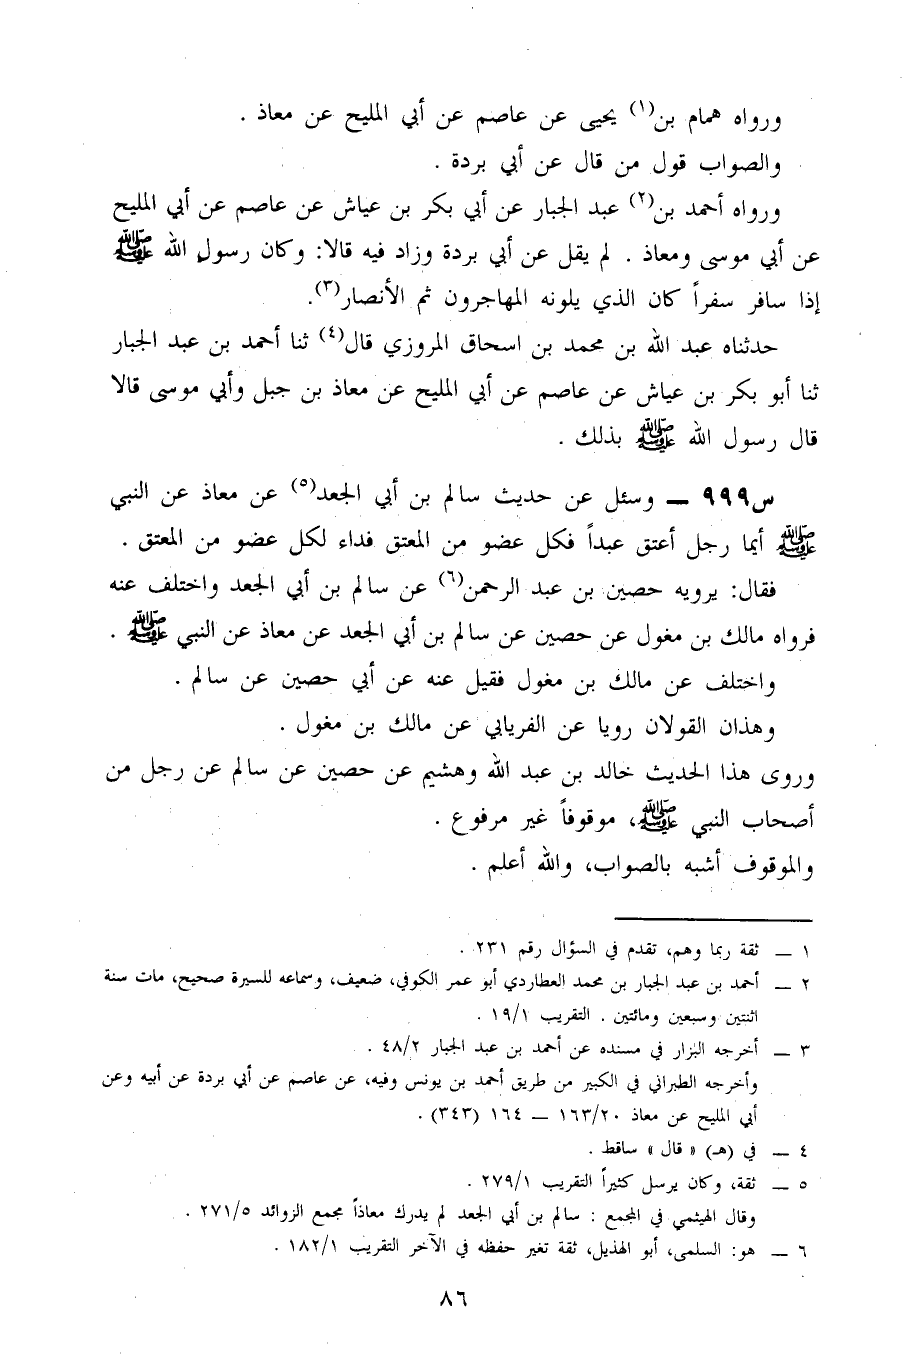 ورواه همام بن(١) يحيى عن عاصم عن أبي المليح عن معاذ .
والصواب قول من قال عن أبي بردة .
ورواه أحمد بن(٢) عبد الجبار عن أبي بكر بن عياش عن عاصم عن أبي المليح
عن أبي موسى ومعاذ . لم يقل عن أبي بردة وزاد فيه قالا: وكان رسول الله ﷺ
إذا سافر سفراً كان الذي يلونه المهاجرون ثم الأنصار(٣).
حدثناه عبد الله بن محمد بن اسحاق المروزي قال(٤) ثنا أحمد بن عبد الجبار
ثنا أبو بكر بن عياش عن عاصم عن أبي المليح عن معاذ بن جبل وأبي موسى قالا
قال رسول الله ﷺ بذلك .
س٩٩٩ ــ وسئل عن حديث سالم بن أبي الجعد(٥) عن معاذ عن النبي
ﷺ أيما رجل أعتق عبداً فكل عضو من المعتق فداء لكل عضو من المعتق .
فقال: يرويه حصين بن عبد الرحمن(٦) عن سالم بن أبي الجعد واختلف عنه
فرواه مالك بن مغول عن حصين عن سالم بن أبي الجعد عن معاذ عن النبي ﷺ .
واختلف عن مالك بن مغول فقيل عنه عن أبي حصين عن سالم .
وهذان القولان رويا عن الفريابي عن مالك بن مغول .
وروى هذا الحديث خالد بن عبد الله وهشيم عن حصين عن سالم عن رجل من
أصحاب النبي ﷺ، موقوفاً غير مرفوع .
والموقوف أشبه بالصواب، والله أعلم .
١ ــ ثقة ربما وهم، تقدم في السؤال رقم ٢٣١ .
٢ ــ أحمد بن عبد الجبار بن محمد العطاردي أبو عمر الكوفي، ضعيف، وسماعه للسيرة صحيح، مات سنة
اثنتين وسبعين ومائتين . التقريب ١٩/١ .
٣ ــ أخرجه البزار في مسنده عن أحمد بن عبد الجبار ٤٨/٢ .
وأخرجه الطبراني في الكبير من طريق أحمد بن يونس وفيه، عن عاصم عن أبي بردة عن أبيه وعن
أبي المليح عن معاذ ١٦٣/٢٠ ــ ١٦٤ (٣٤٣) .
٤ ــ في (هـ) « قال » ساقط .
٥ ــ ثقة، وكان يرسل كثيراً التقريب ٢٧٩/١ .
وقال الهيثمي في المجمع : سالم بن أبي الجعد لم يدرك معاذاً مجمع الزوائد ٢٧١/٥ .
٦ ــ هو: السلمى، أبو الهذيل، ثقة تغير حفظه في الآخر التقريب ١٨٢/١ .
٨٦